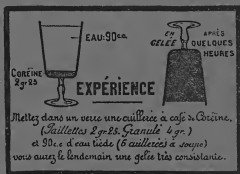 EAU: 90cc.
CORÉÏNE
2 gr. 25
EN GELÉE
APRÈS
QUELQUES
HEURES
EXPÉRIENCE
Mettez dans un verre une cuillerée à café de Coréïne.
(Paillettes 2 gr. 25. Granulé 4 gr.)
et 90 c.c d'eau tiède (6 cuillerées à soupe)
vous aurez le lendemain une gelée très consistante.